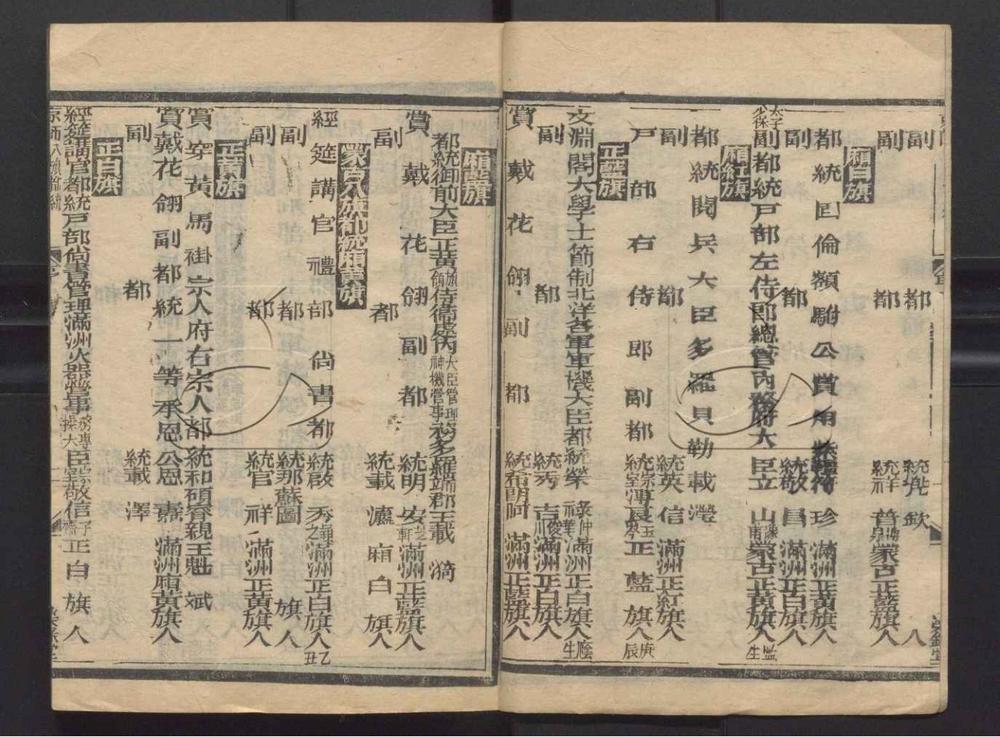 副都統兜欽 旗人
副都統祥普 蒙古正藍旗人
廂白旗
都統固倫額駙公賞用紫韁符珍滿洲正黃旗人
副都統敬昌滿洲正白旗人
副都統戶部左侍郎總管內務府大臣立山 蒙古正黃旗人 監生
廂紅旗
都統閱兵大臣多羅貝勒載瀅
副都統英信滿洲正紅旗人
戶部右侍郎副都統宗室溥良 正藍旗人 庚辰
正藍旗
文淵閣大學士節制北洋各軍軍機大臣都統榮祿 仲華 滿洲正白旗人 廕生
副都統秀吉 滿洲正白旗人
賞戴花翎副都統希朗阿滿洲正藍旗人
廂藍旗
都統御前大臣正黃旗領侍衛內大臣管理神機營事務多羅端郡王載漪
賞戴花翎副都統明安 滿洲正藍旗人
副都統載瀛廂白旗人
蒙古八旗都統廂黃旗
經筵講官禮部尚書都統啟秀 滿洲正白旗人 乙丑
副都統那蘇圖 旗人
副都統官祥滿洲正黃旗人
正黃旗
賞穿黃馬褂宗人府右宗人都統和碩睿親王魁斌
賞戴花翎副都統一等承恩公恩燾滿洲廂黃旗人
副都統載澤
正白旗
經筵講官都統戶部尚書管理滿洲火器營事務專操大臣宗室敬信 子齋 正白旗人